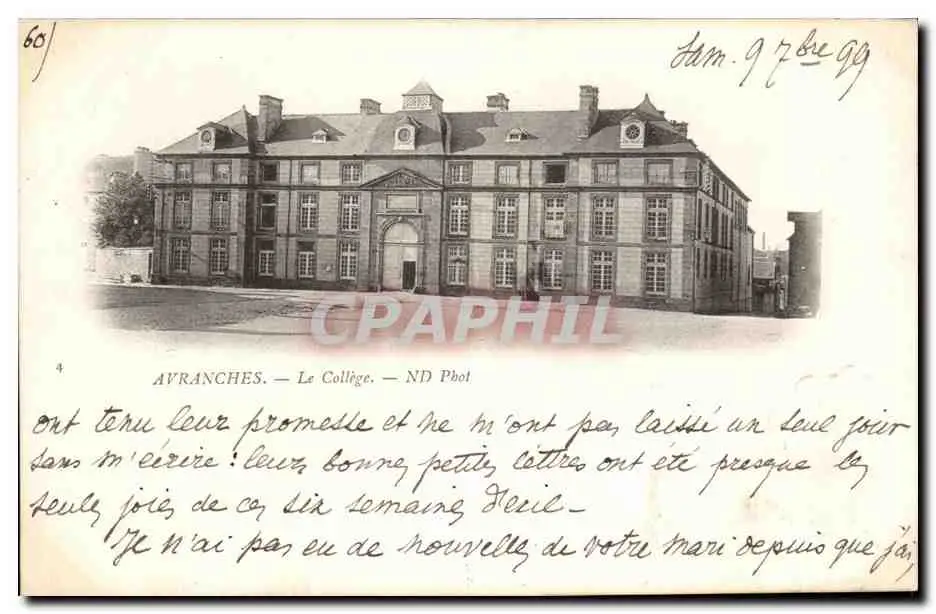 60)
Sam. 9 7bre 99
CPAPHIL
4
AVRANCHES. — Le Collège. — ND Phot
ont tenu leur promesse et ne m'ont pas laissé un seul jour
sans m'écrire : leurs bonnes petites lettres ont été presque les
seules joies de ces six semaines d'exil —
Je n'ai pas eu de nouvelles de votre mari depuis que j'ai,